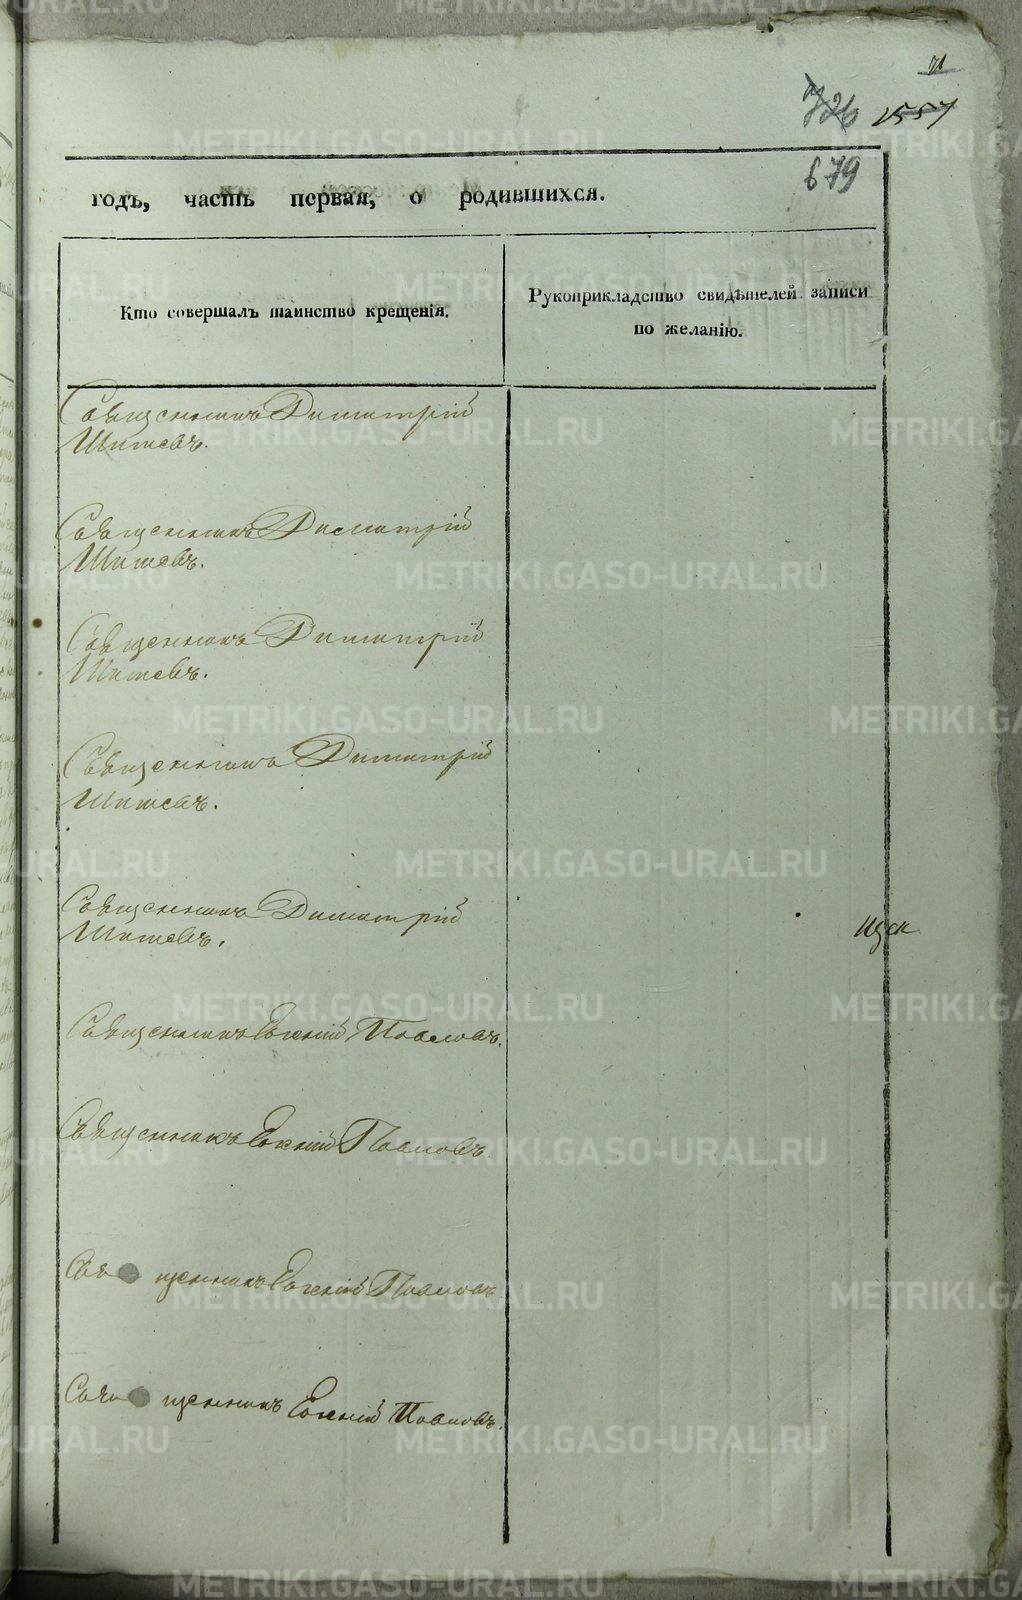 71
726 1557
679
годъ, часть первая, о родившихся.
Кто совершалъ таинство крещенія.
Рукоприкладство свидѣтелей записи
по желанію.
Священникъ Димитрій
Шишевъ.
Священникъ Димитрій
Шишевъ.
Священникъ Димитрій
Шишевъ.
Священникъ Димитрій
Шишевъ.
Священникъ Димитрій
Шишевъ.
Священникъ Евгеній Павловъ.
Священникъ Евгеній Павловъ.
Священникъ Евгеній Павловъ.
Священникъ Евгеній Павловъ.
METRIKI.GASO-URAL.RU